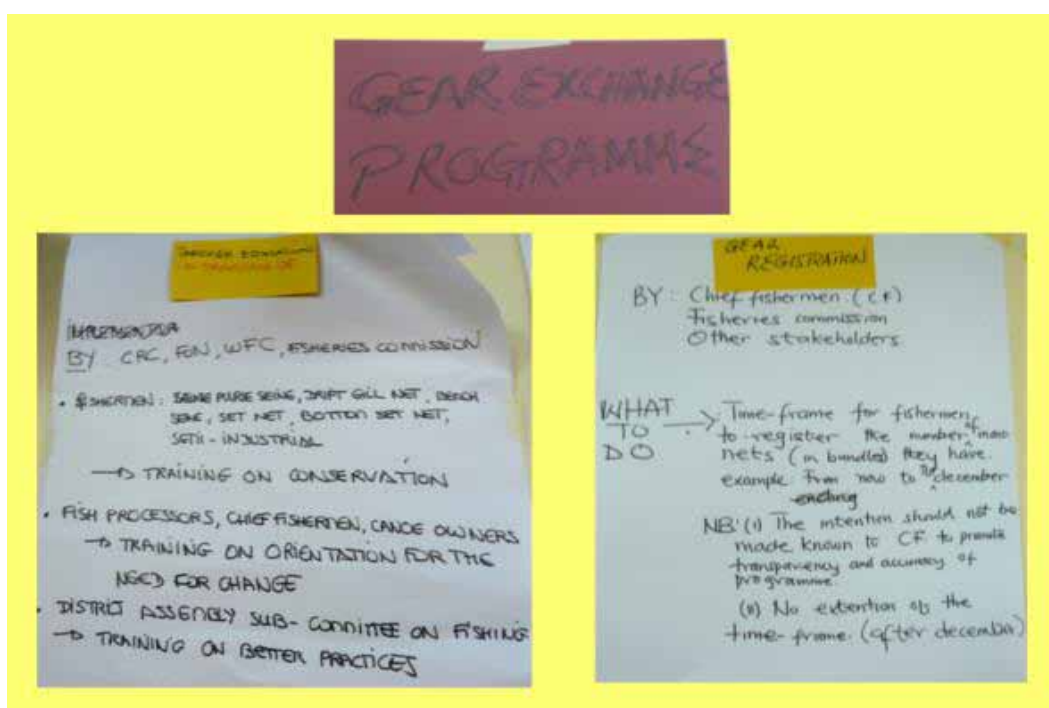 GEAR EXCHANGE
PROGRAMME
THROUGH EDUCATION
IMPLEMENTOR
BY CRC, FON, WFC, FISHERIES COMMISSION
• FISHERMEN: PURSE SEINE, DRIFT GILL NET, BEACH
SEINE, SET NET, BOTTOM SET NET,
SEMI-INDUSTRIAL
→ TRAINING ON CONSERVATION
• FISH PROCESSORS, CHIEF FISHERMEN, CANOE OWNERS
→ TRAINING ON ORIENTATION FOR THE
NEED FOR CHANGE
• DISTRICT ASSEMBLY SUB-COMMITTEE ON FISHING
→ TRAINING ON BETTER PRACTICES
GEAR
REGISTRATION
BY: Chief fishermen (CF)
Fisheries commission
Other stakeholders
WHAT
TO
DO
→ Time-frame for fishermen
to register the number of mono
nets (in bundles) they have.
example from now to the december
ending
NB: (i) The intention should not be
made known to CF to provide
transparency and accuracy of
programme
(ii) No extention of the
time-frame (after december)